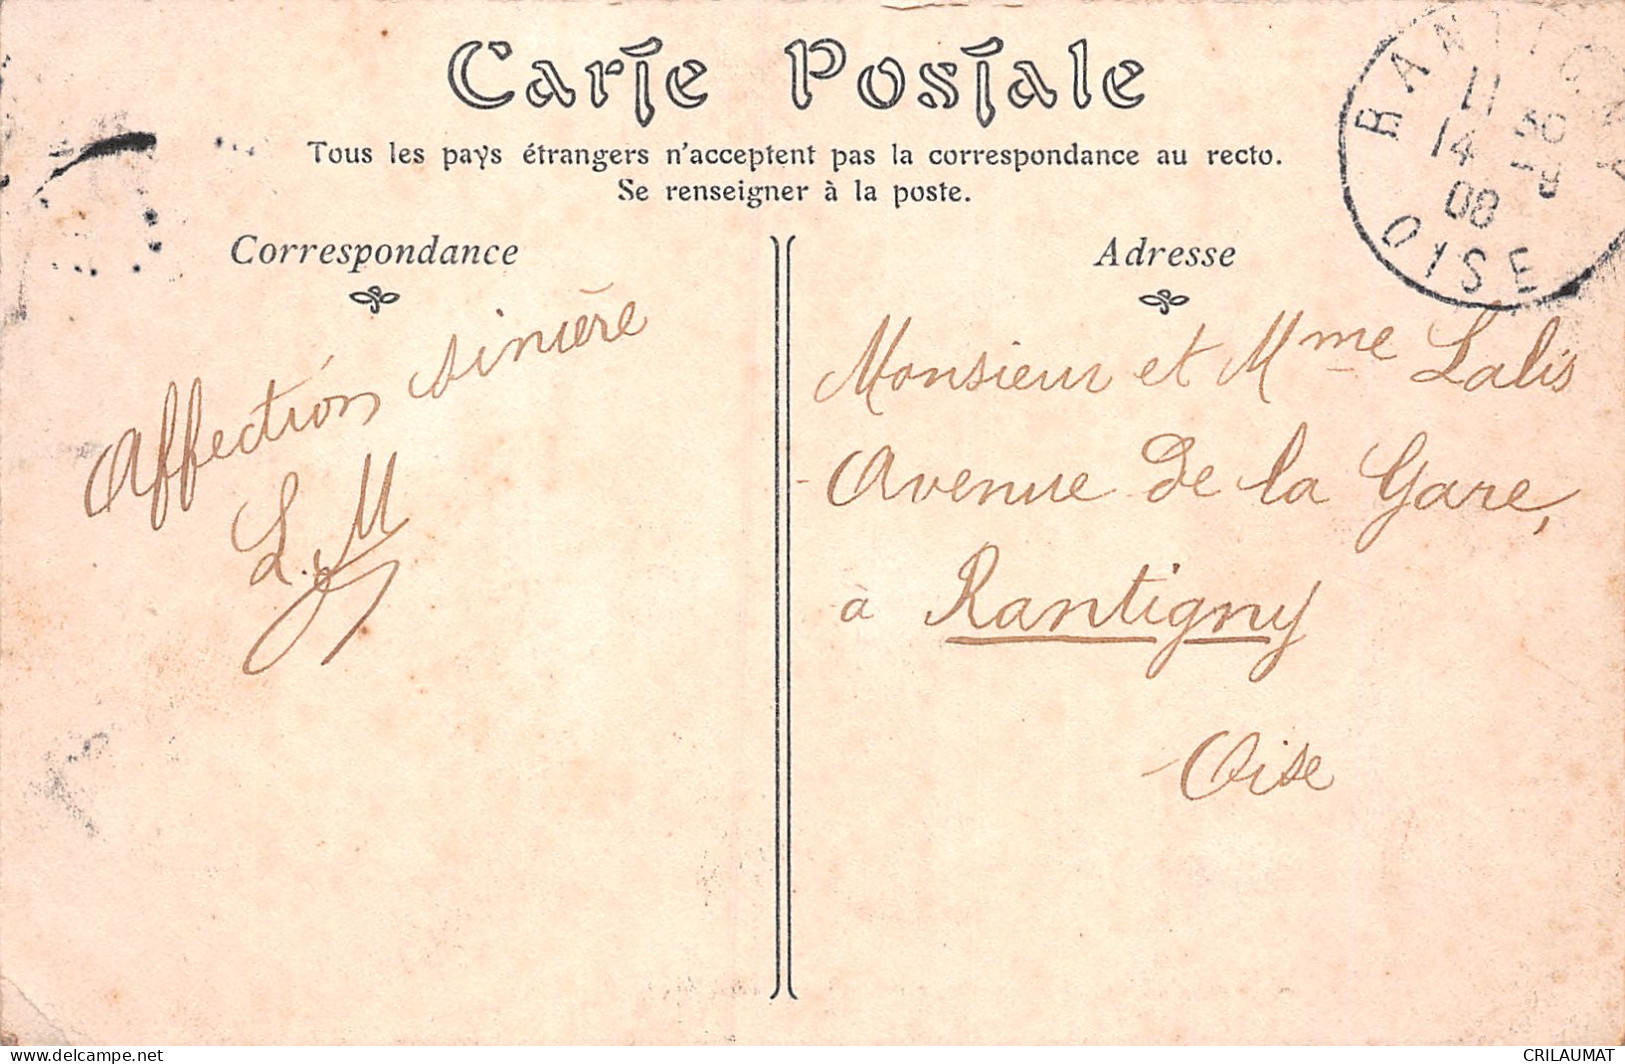 Carte Postale
Tous les pays étrangers n'acceptent pas la correspondance au recto.
Se renseigner à la poste.
RANTIGNY
11 30
14
08
OISE
Correspondance
Affection sincère
L. M
Adresse
Monsieur et Mme Lalis
Avenue de la Gare,
à Rantigny
Oise
CRILAUMAT